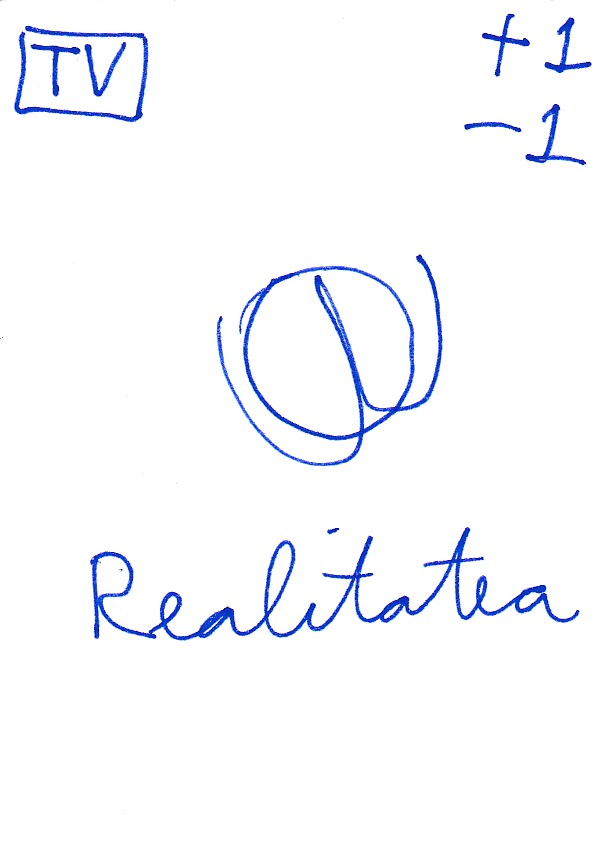 TV
+1
-1
Realitatea